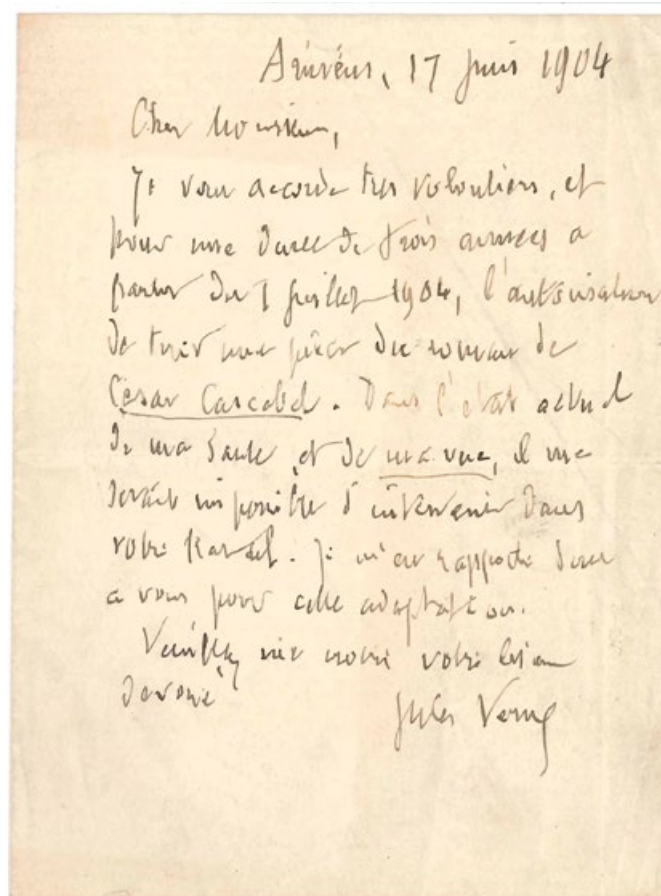 Amiens, 17 juin 1904
Cher Monsieur,
Je vous accorde très volontiers, et
pour une durée de trois années a
partir du 1 juillet 1904, l'autorisation
de tirer une pièce du roman de
César Cascabel. Dans l'état actuel
de ma santé et de ma vue, il me
serait impossible d'intervenir dans
votre travail. Je m'en rapporte donc
a vous pour cette adaptation.
Veuillez me croire votre bien
dévoué
Jules Verne